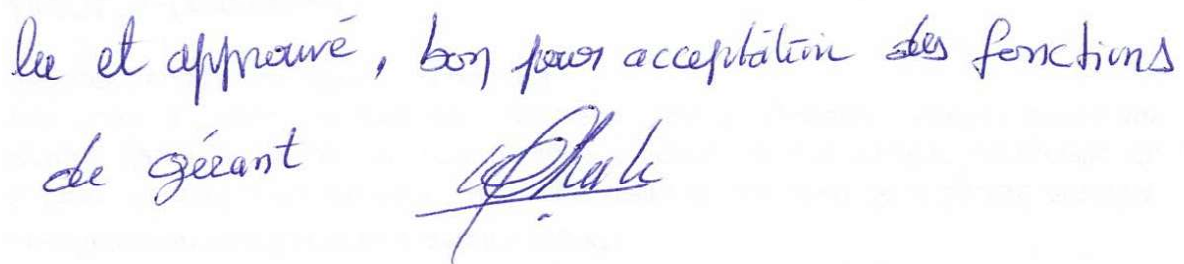 lu et approuvé, bon pour acceptation des fonctions
de gérant